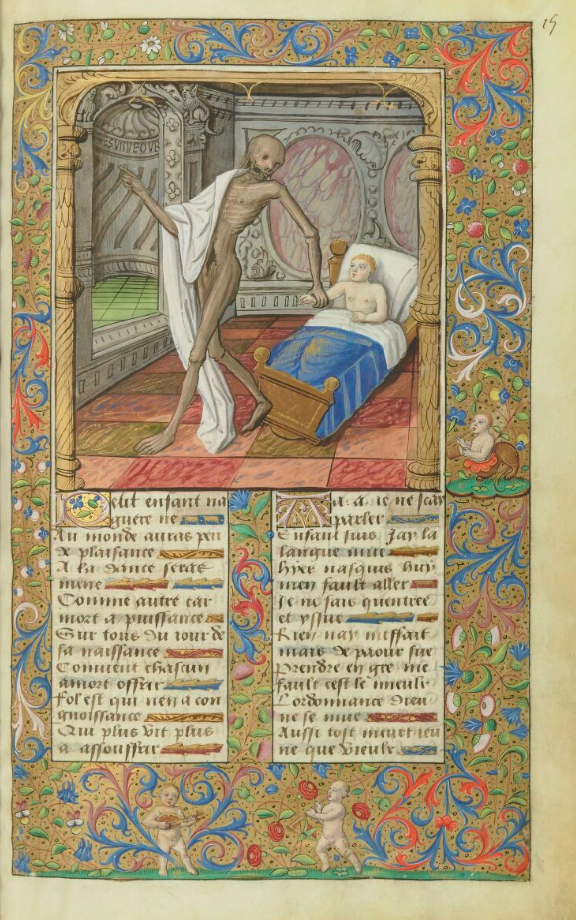 15
SURDEQUE
Petit enfant na
guere ne
Au monde auras peu
de plaisance
A la dance seras
mene
Comme autre car
mort a puissance
Sur tous du iour de
sa naissance
Convient chascun
a mort offrir
Fol est qui nen a con
gnoissance
Qui plus vit plus
a assouffrir
A. a. a. ie ne scay
parler
Enfant suis Jay la
langue mue
hyer nasquis huy
men fault aller
Je ne fais quentree
et yssue
Rien nay meffait
mais de paour sue
Prendre en gre me
fault cest le mieulx
Lordonnance dieu
ne se mue
Aussi tost meurt ieu
ne que vieulx